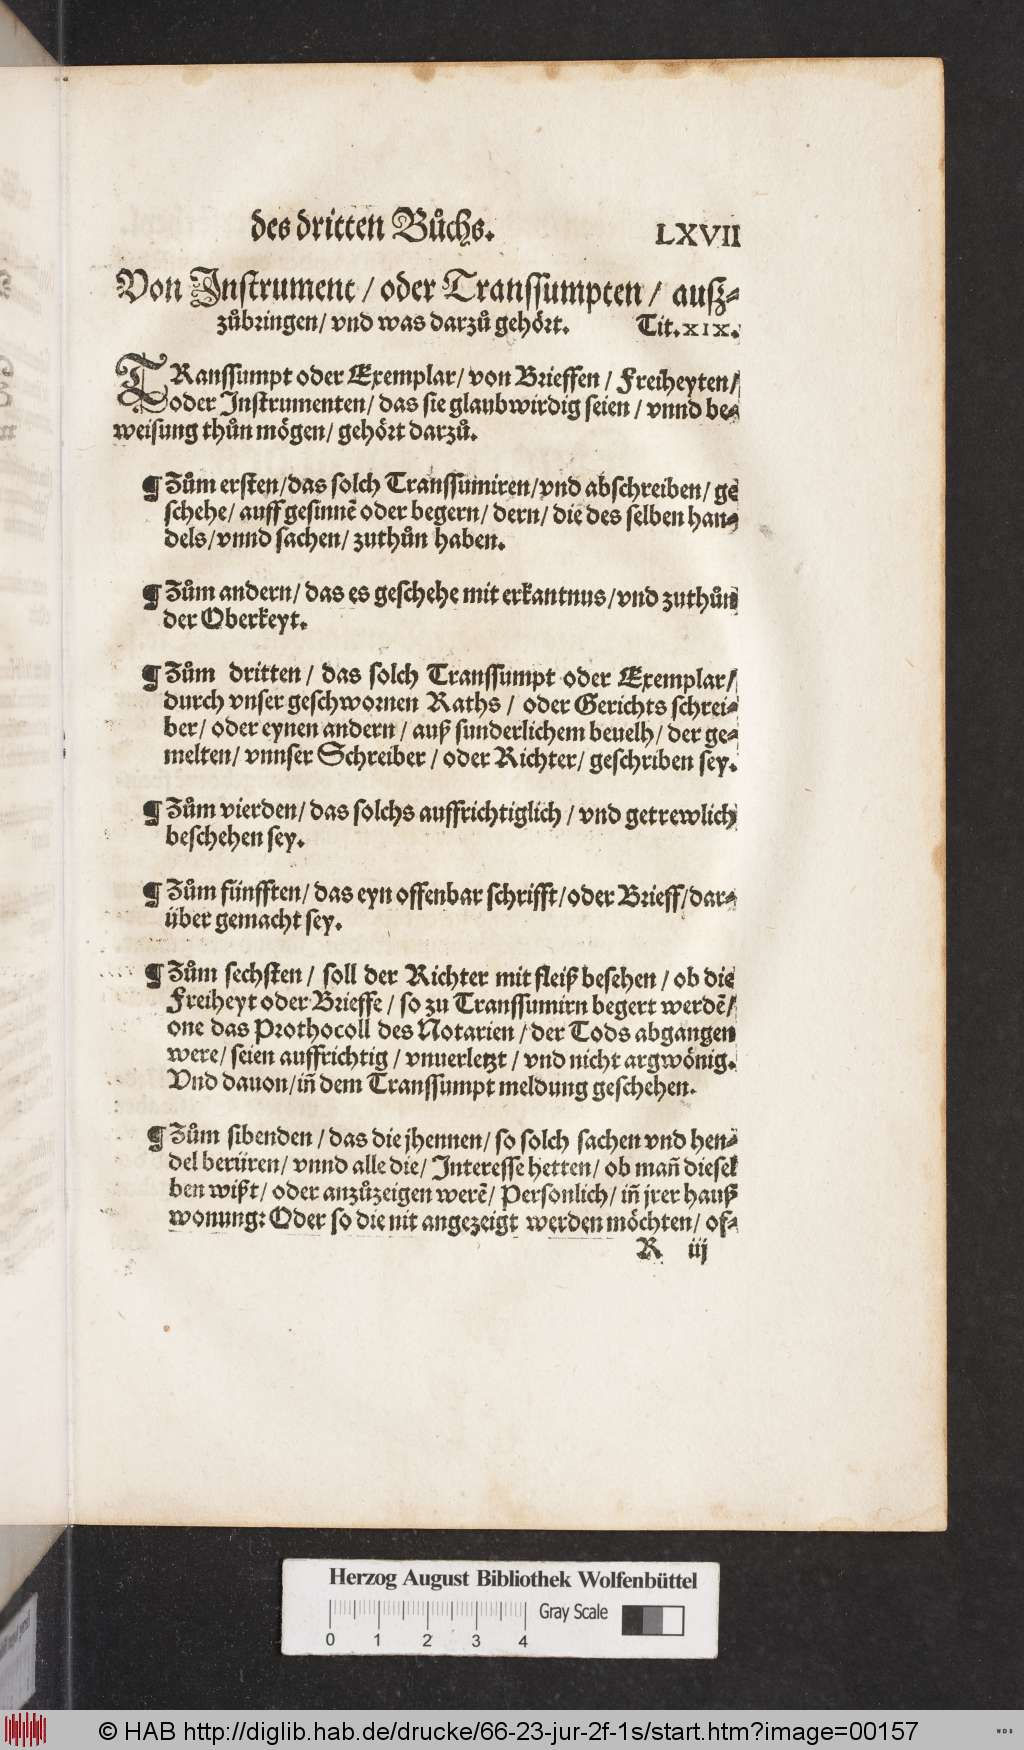 des dritten Bůchs. LXVII
Von Instrument / oder Transsumpten / außz-
zůbringen / vnd was darzů gehört. Tit. XIX.
TRanssumpt oder Exemplar / von Brieffen / Freiheyten /
oder Instrumenten / das sie glaubwirdig seien / vnnd be-
weisung thůn mögen / gehört darzů.
¶ Zům ersten / das solch Transsumiren / vnd abschreiben / ge
schehe / auff gesinnẽ oder begern / dern / die des selben han-
dels / vnnd sachen / zuthůn haben.
¶ Zům andern / das es geschehe mit erkantnus / vnd zuthůn
der Oberkeyt.
¶ Zům dritten / das solch Transsumpt oder Exemplar /
durch vnser geschwornen Raths / oder Gerichts schrei-
ber / oder eynen andern / auß sunderlichem beuelh / der ge-
melten / vnnser Schreiber / oder Richter / geschriben sey.
¶ Zům vierden / das solchs auffrichtiglich / vnd getrewlich
beschehen sey.
¶ Zům fünfften / das eyn offenbar schrifft / oder Brieff / dar-
über gemacht sey.
¶ Zům sechsten / soll der Richter mit fleiß besehen / ob die
Freiheyt oder Brieffe / so zu Transsumirn begert werdẽ /
one das Prothocoll des Notarien / der Tods abgangen
were / seien auffrichtig / vnuerletzt / vnd nicht argwönig.
Vnd dauon / iñ dem Transsumpt meldung geschehen.
¶ Zům sibenden / das die jhennen / so solch sachen vnd hen-
del berüren / vnnd alle die / Interesse hetten / ob mañ diesel
ben wißt / oder anzůzeigen werẽ / Personlich / iñ jrer hauß
wonung: Oder so die nit angezeigt werden möchten / of-
R iij
Herzog August Bibliothek Wolfenbüttel
0 1 2 3 4 Gray Scale
© HAB http://diglib.hab.de/drucke/66-23-jur-2f-1s/start.htm?image=00157